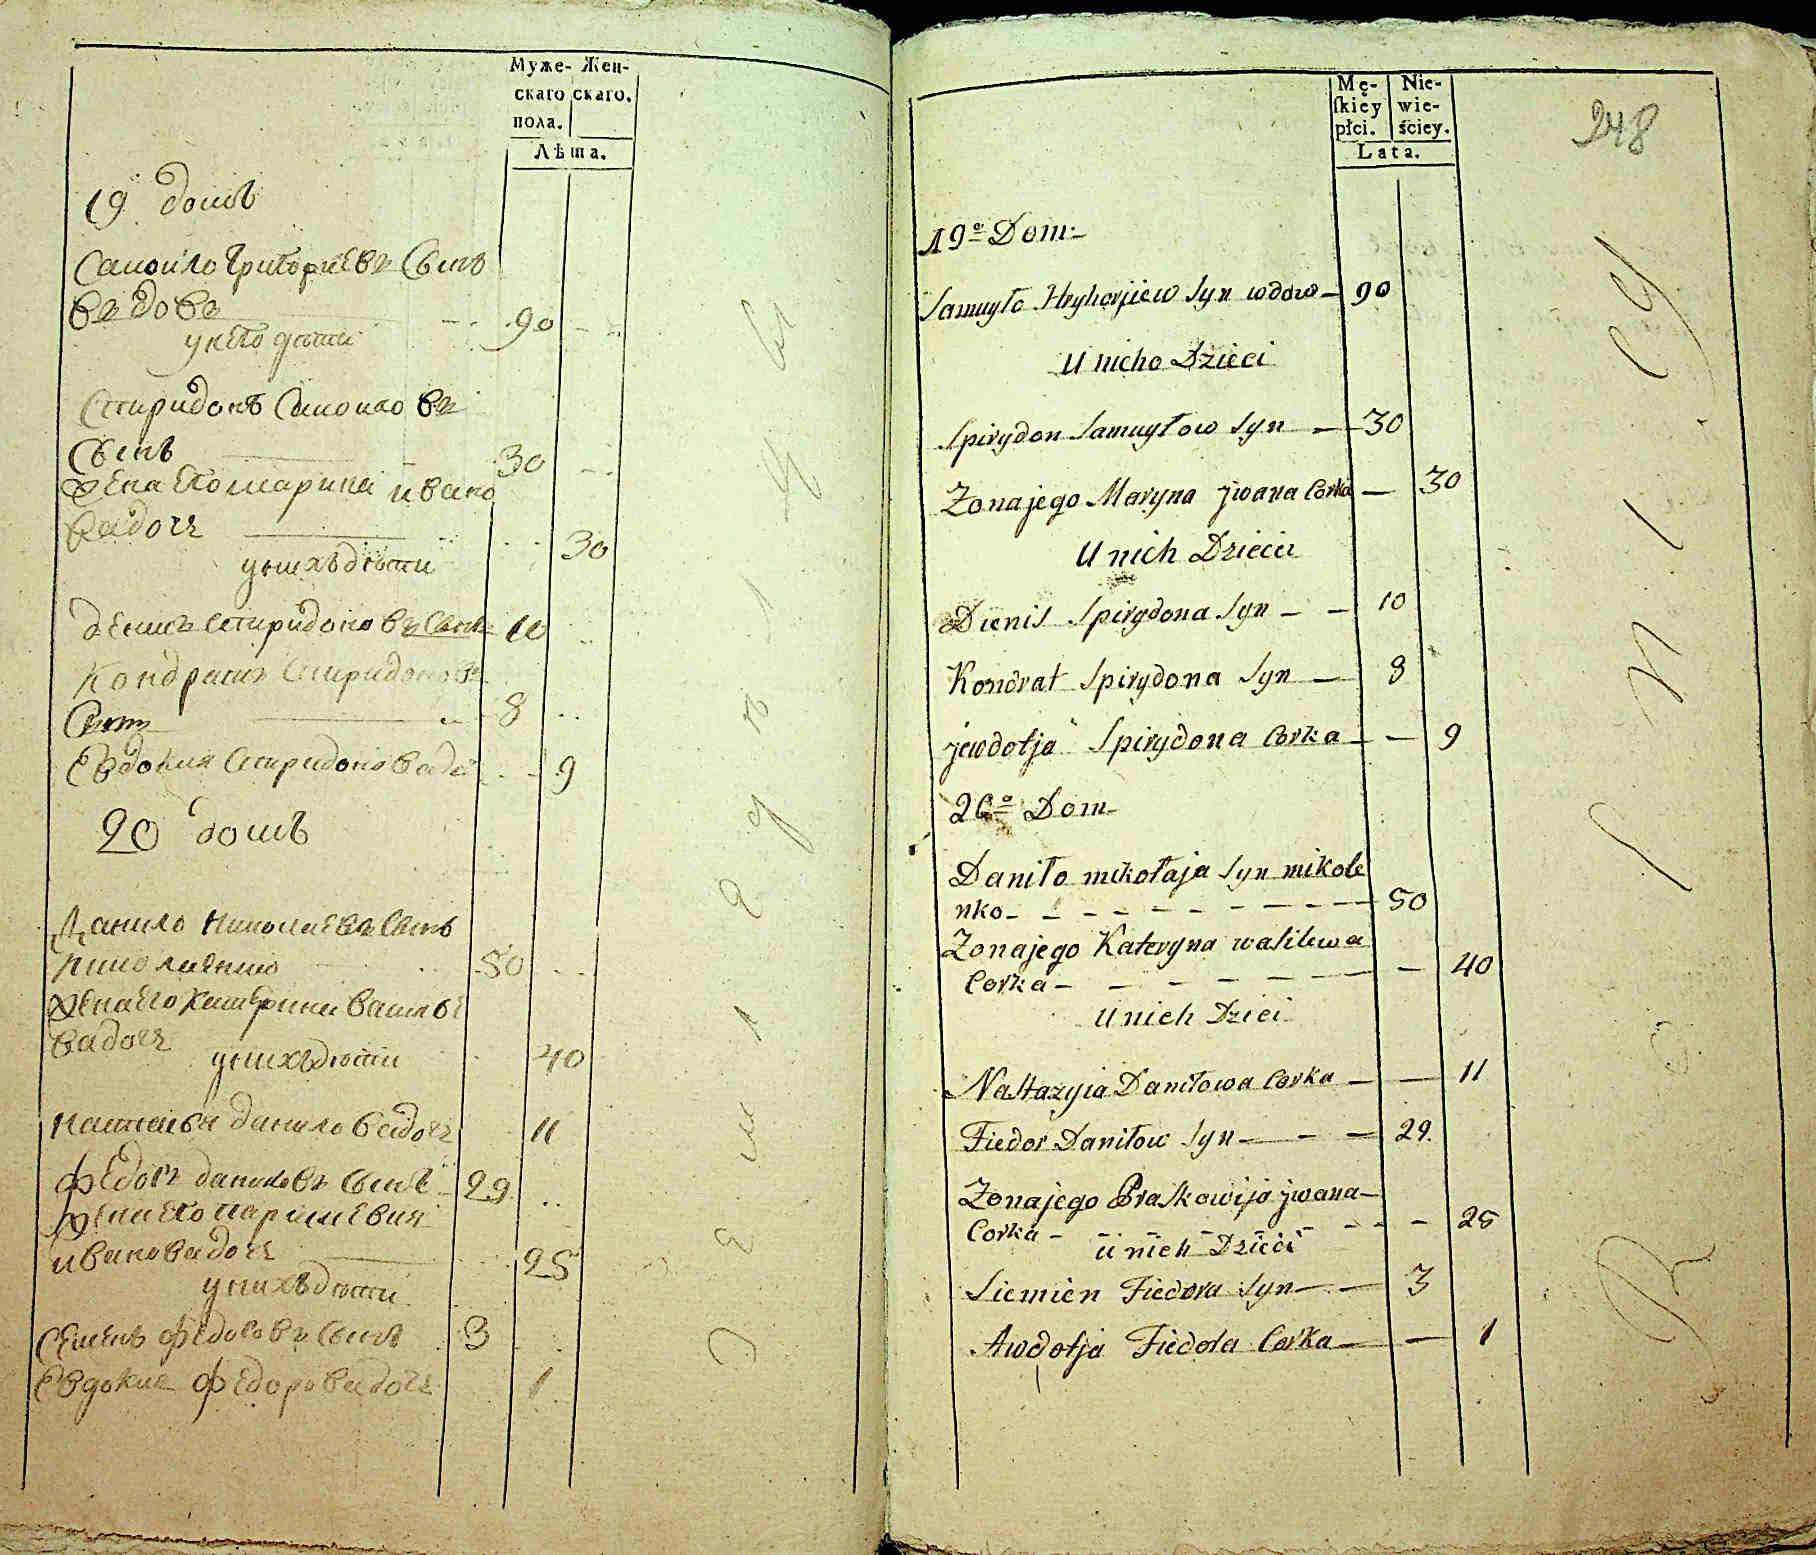 Муже- Жен-
скаго скаго.
пола.
Лѣта.
19 домъ
Самоило Григориевъ Сынъ
вдовъ 90
у него дѣти
Спиридонъ Самоиловъ
Сынъ 30
жена его марина ивано
ва дочь 30
у нихъ дѣти
денисъ спиридоновъ сынъ 10
Кондратъ Спиридоновъ
Сынъ 8
Евдокия Спиридонова до 9
20 домъ
Данило николаевъ Сынъ
николаенко 50
жена его катерина василье
ва дочь 40
у нихъ дѣти
настасья данилова дочь 11
федоръ даниловъ сынъ 29
жена его
иванова дочь 25
у нихъ дѣти
семенъ федоровъ сынъ 3
Евдокия федорова дочь 1
Mę- Nie-
skiey wie-
płci. ściey.
Lata.
248
19º Dom
Samuyło Hryhorjiew Syn wdow 90
U nicho Dzieci
Spirydon Samuyłow Syn 30
Zona jego Maryna jwana Corka 30
U nich Dzieci
Dienis Spirydona Syn 10
Kondrat Spirydona Syn 8
jewdotja Spirydona Corka 9
20º Dom
Daniło mikołaja Syn mikole
nko 50
Zona jego Kateryna wasilewa
Corka 40
U nich Dzieci
Nastazyia Daniłowa Corka 11
Fiedor Daniłow Syn 29.
Zona jego Praskowija jwana
Corka 25
U nich Dzieci
Siemien Fiedora Syn 3
Awdotja Fiedora Corka 1